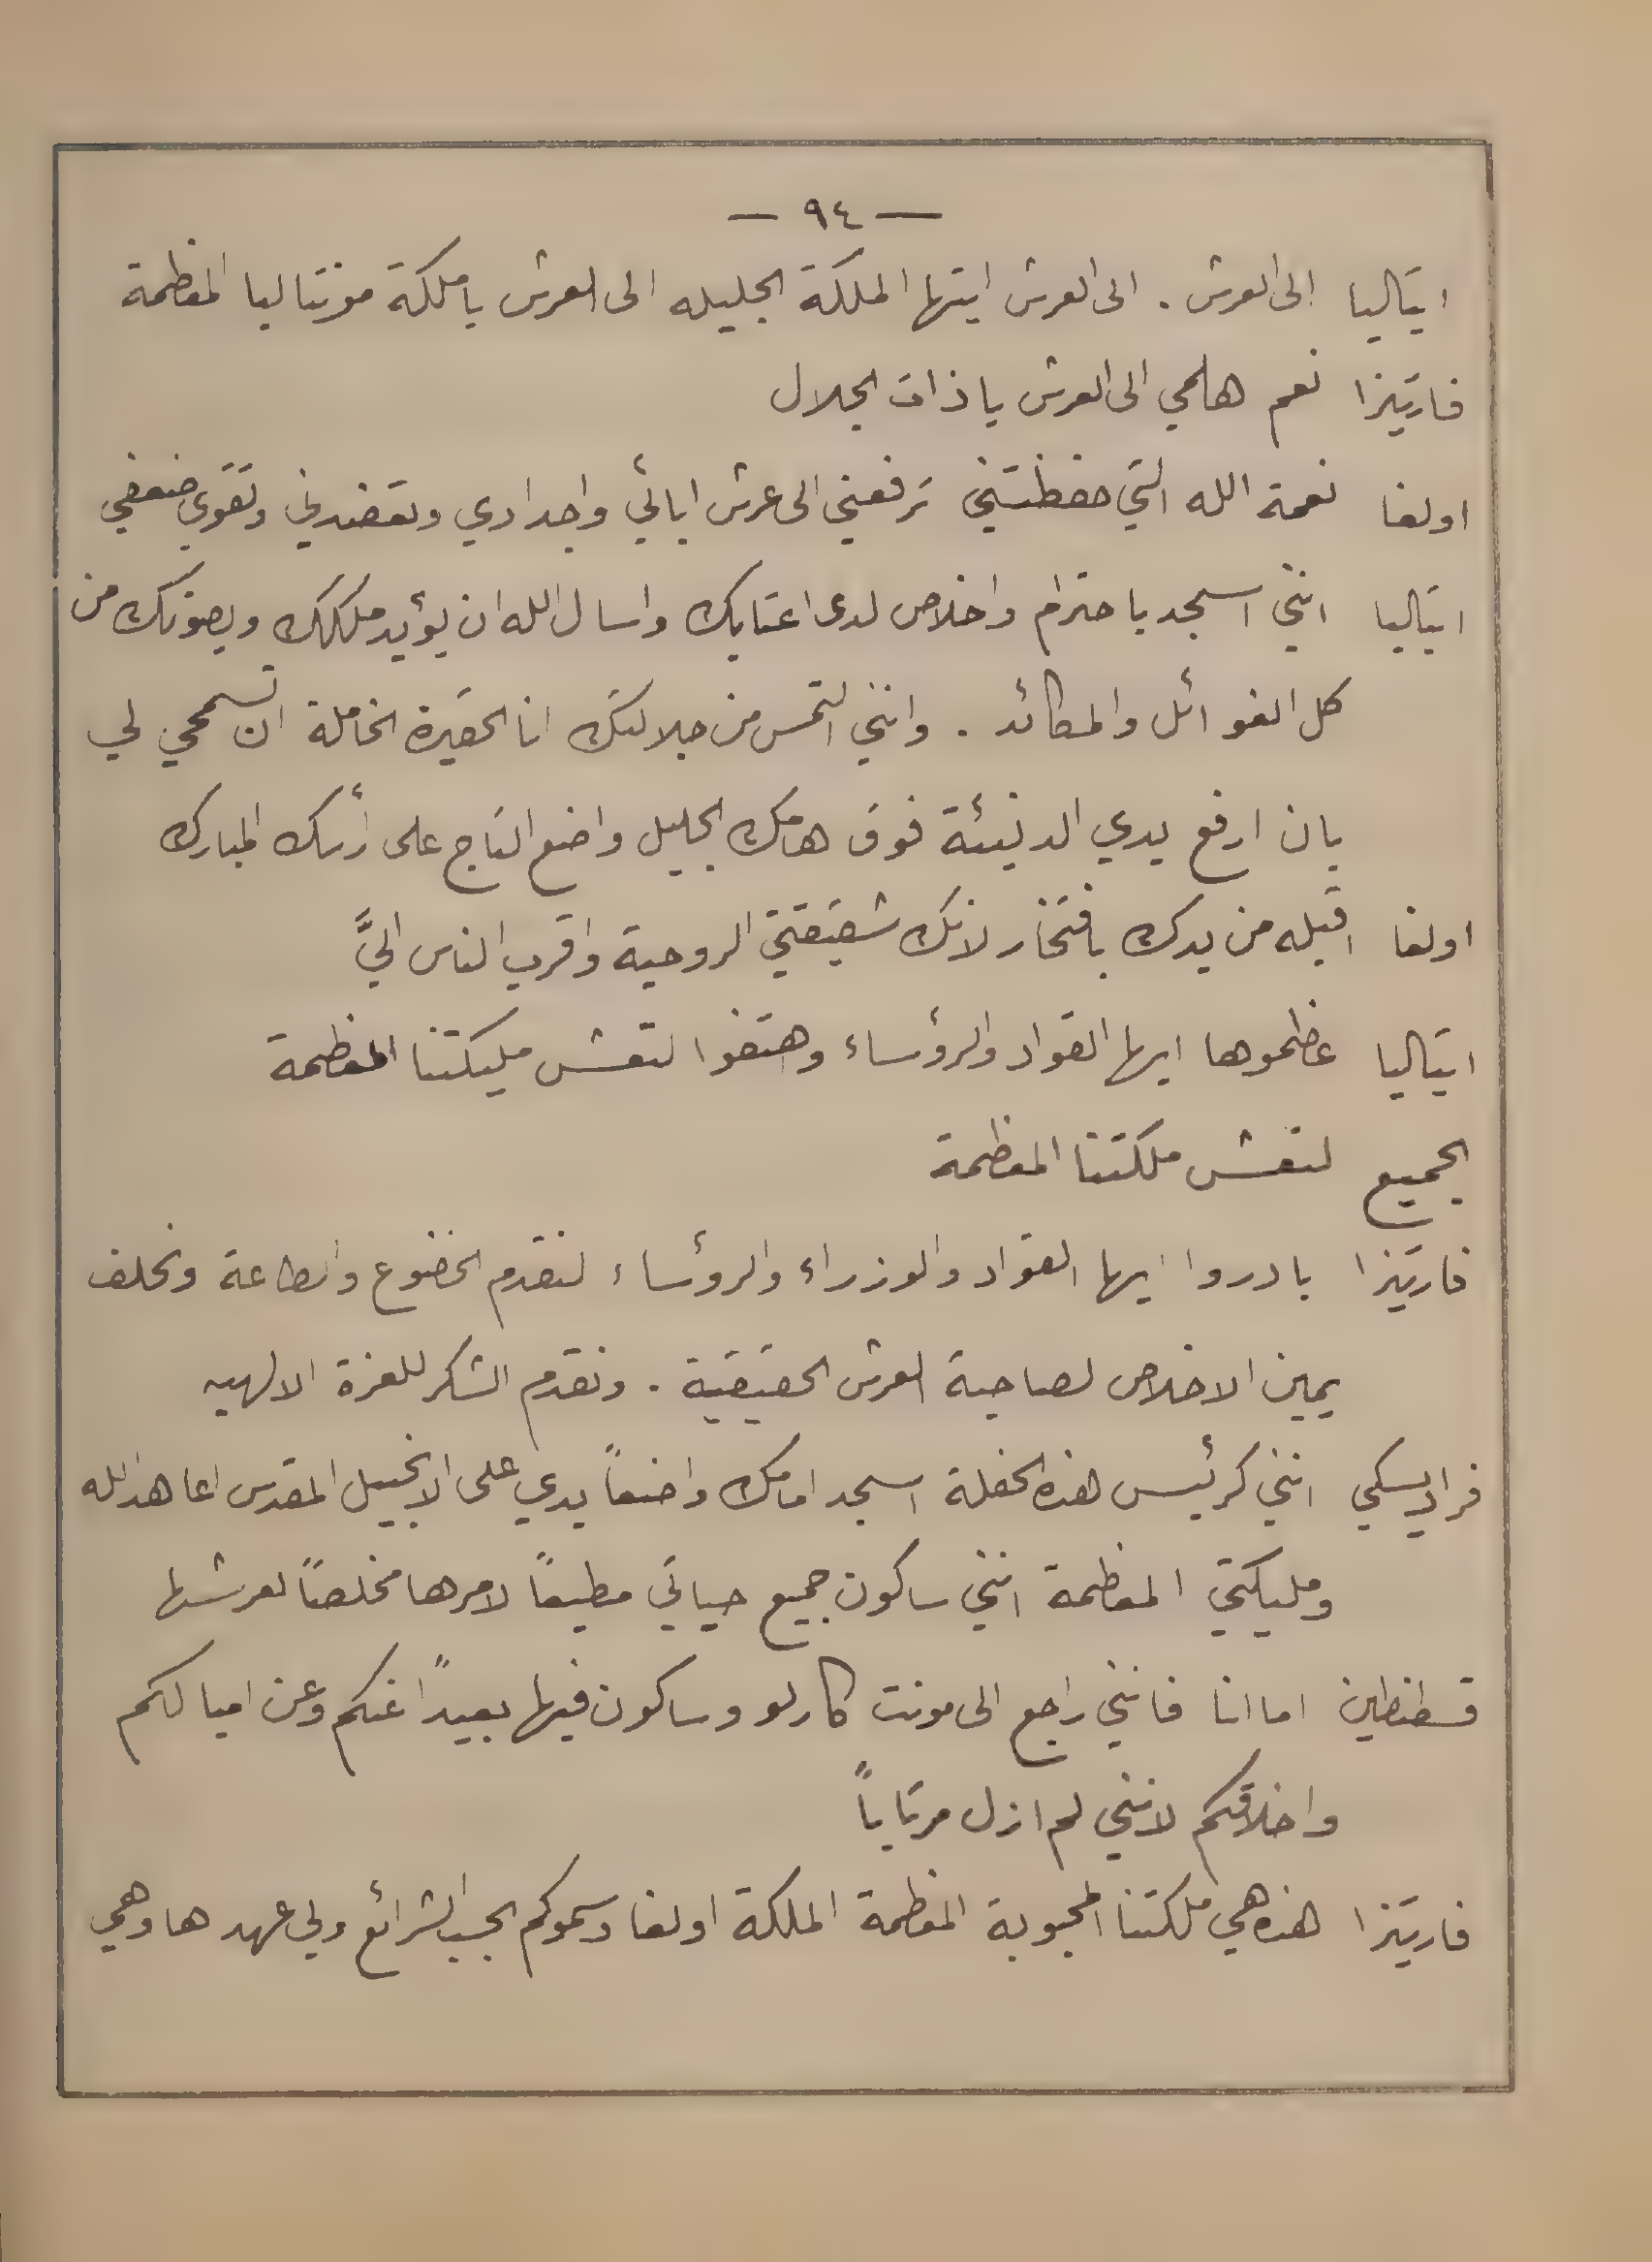 — ٩٤ —
ايتاليا الى العرش . الى العرش ايتها الملكة الجليله الى العرش يا ملكة مونتاليا المعظمة
فارتيزا نعم هلمي الى العرش يا ذات الجلال
اولغا نعمة الله التي حفظتني ترفعني الى عرش ابائي واجدادي وتعضدني وتقوي ضعفي
ايتاليا انني اسجد باحترام واخلاص لدى اعتابك واسال الله ان يؤيد ملكك ويصونك من
كل الغوائل والمكائد . وانني التمس من جلالتك انا الحقيرة الخاملة ان تسمحي لي
بان ارفع يدي الدنيئة فوق هامك الجليل واضع التاج على رأسك المبارك
اولغا اقبله من يدك بافتخار لانك شقيقتي الروحية واقرب الناس اليَّ
ايتاليا عظموها ايها القواد والرؤساء وهتفوا لتعش مليكتنا المعظمة
الجميع لتعش ملكتنا المعظمة
فارتيزا بادروا ايها القواد والوزراء والرؤساء لنقدم الخضوع والطاعة ونحلف
يمين الاخلاص لصاحبة العرش الحقيقية . ونقدم الشكر للعزة الالهيه
فراديسكي انني كرئيس هذه الحفلة اسجد امامك واضعاً يدي على الانجيل المقدس اعاهد الله
ومليكتي المعظمة انني ساكون جميع حياتي مطيعاً لامرها مخلصاً لعرشها
قسطنطين اما انا فانني راجع الى مونت كارلو وساكون فيها بعيداً عنكم وعن اميالكم
واخلاقكم لانني لم ازل مرتاباً
فارتيزا هذه هي ملكتنا المحبوبة المعظمة الملكة اولغا وسموكم بحسب الشرائع ولي عهدها وهي